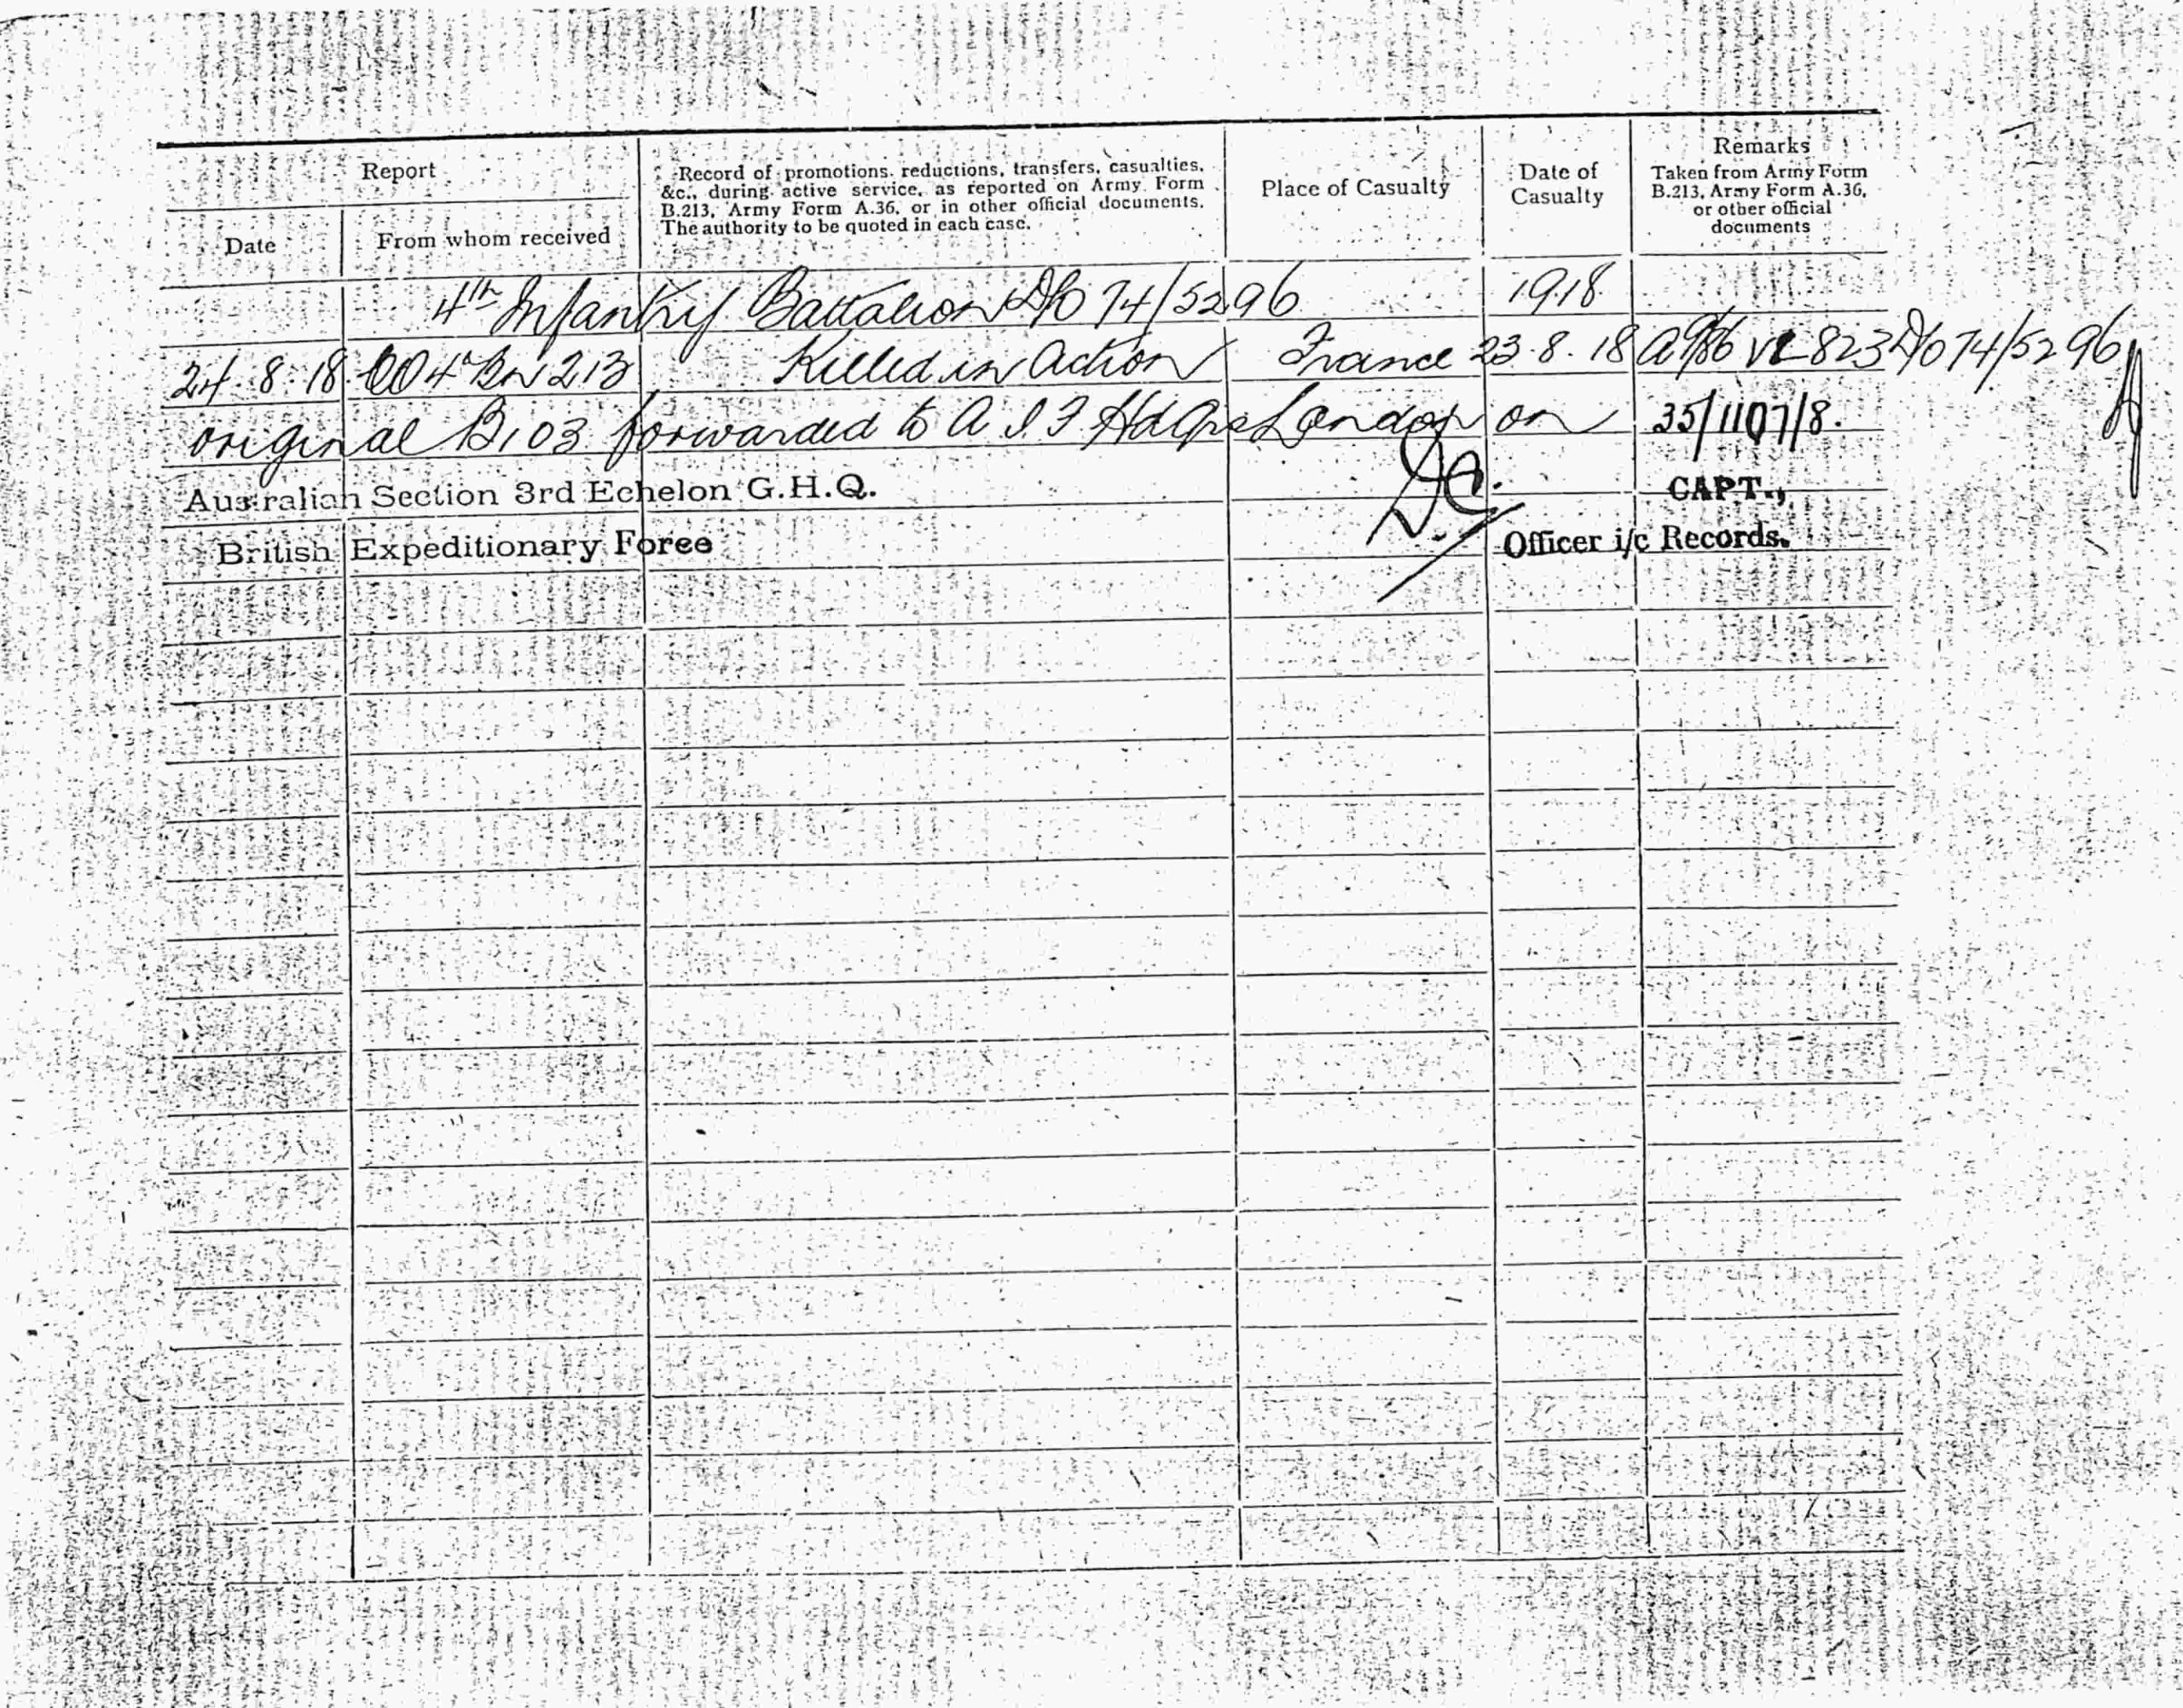 Report
Record of promotions, reductions, transfers, casualties,
&c., during active service, as reported on Army Form
B.213, Army Form A.36, or in other official documents.
The authority to be quoted in each case.
Place of Casualty
Date of
Casualty
Remarks
Taken from Army Form
B.213, Army Form A.36,
or other official
documents
Date
From whom received
4th Infantry Battalion 74/5296 1918
24.8.18 CO 4th Bn 213 Killed in Action France 23.8.18 823 74/5296
original B103 forwarded to A I F Hdqrs London on 35/1107/8.
Australian Section 3rd Echelon G.H.Q. CAPT.,
British Expeditionary Force Officer i/c Records.